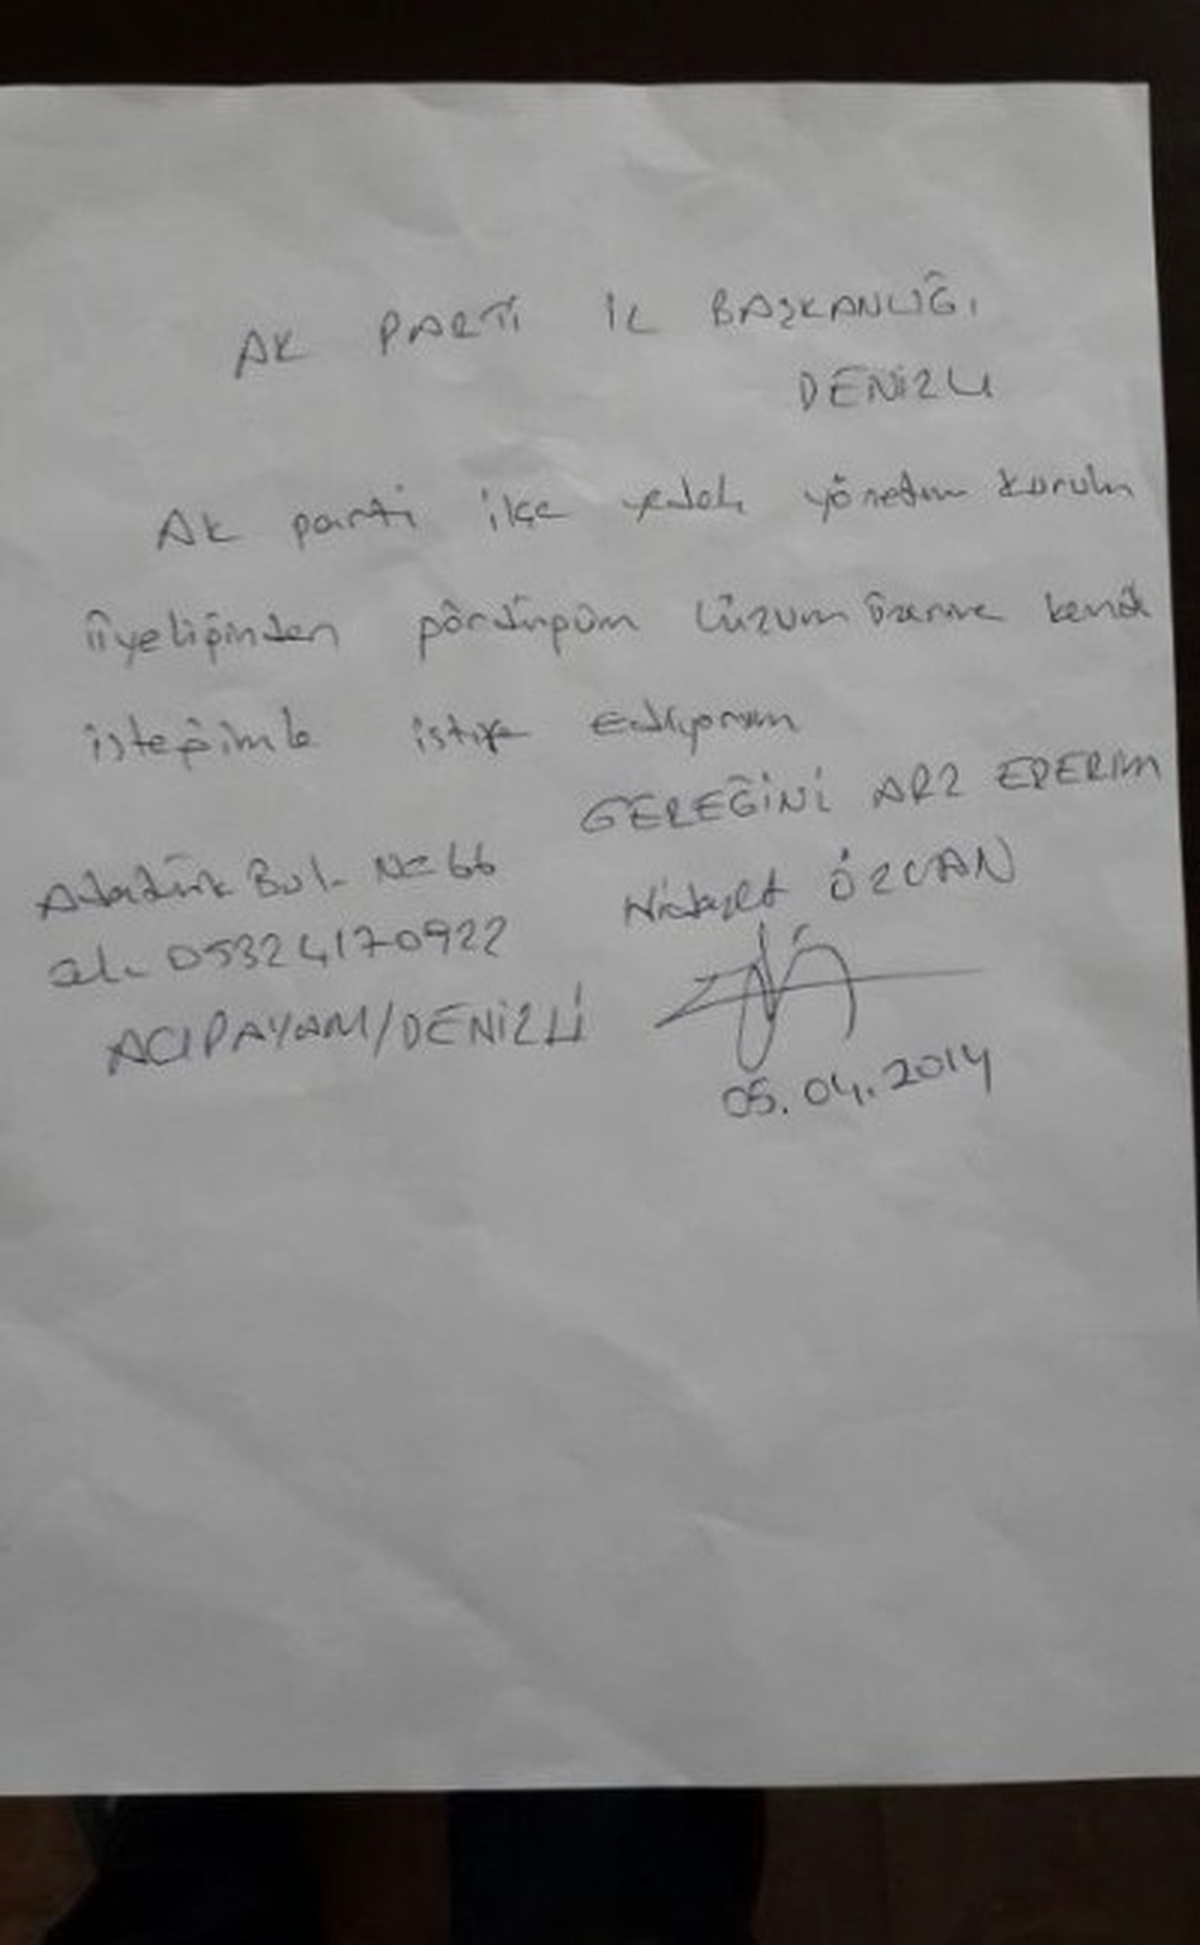 AK PARTİ İL BAŞKANLIĞI
DENİZLİ
AK parti ilçe yedek yönetim kurulu
üyeliğinden gördüğüm lüzum üzerine kendi
isteğimle istifa ediyorum
GEREĞİNİ ARZ EDERİM
Atatürk Bul. No=66
Hidayet ÖZCAN
05324170922
ACIPAYAM/DENİZLİ
05.04.2014